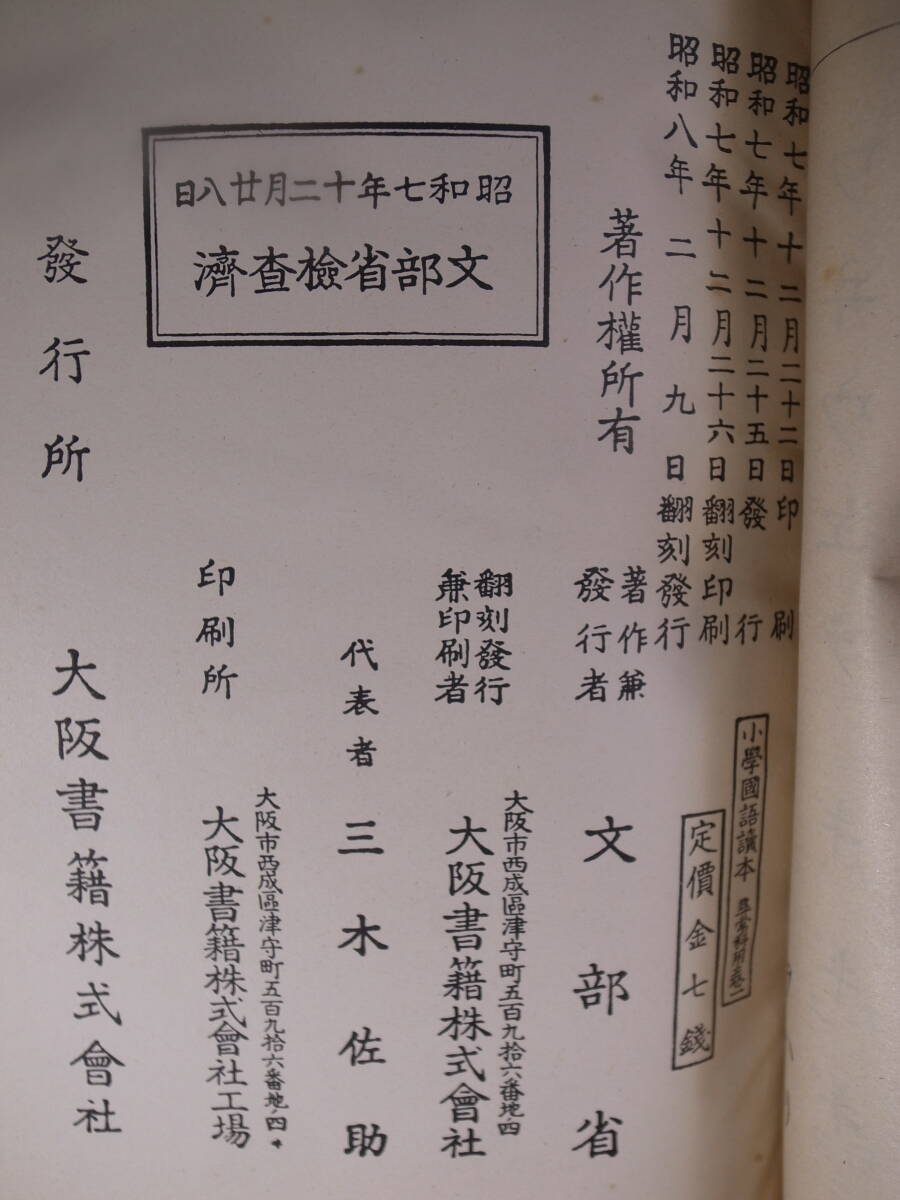 昭和七年十二月二十二日印刷
昭和七年十二月二十五日發行
昭和七年十二月二十六日翻刻印刷
昭和八年二月九日翻刻發行
小學國語讀本 尋常科用卷一
定價金七錢
著作權所有
著作兼
發行者
文部省
昭和七年十二月廿八日
文部省檢查濟
翻刻發行
兼印刷者
大阪市西成區津守町五百九拾六番地ノ四
大阪書籍株式會社
代表者 三木佐助
印刷所
大阪市西成區津守町五百九拾六番地ノ四
大阪書籍株式會社工場
發行所 大阪書籍株式會社